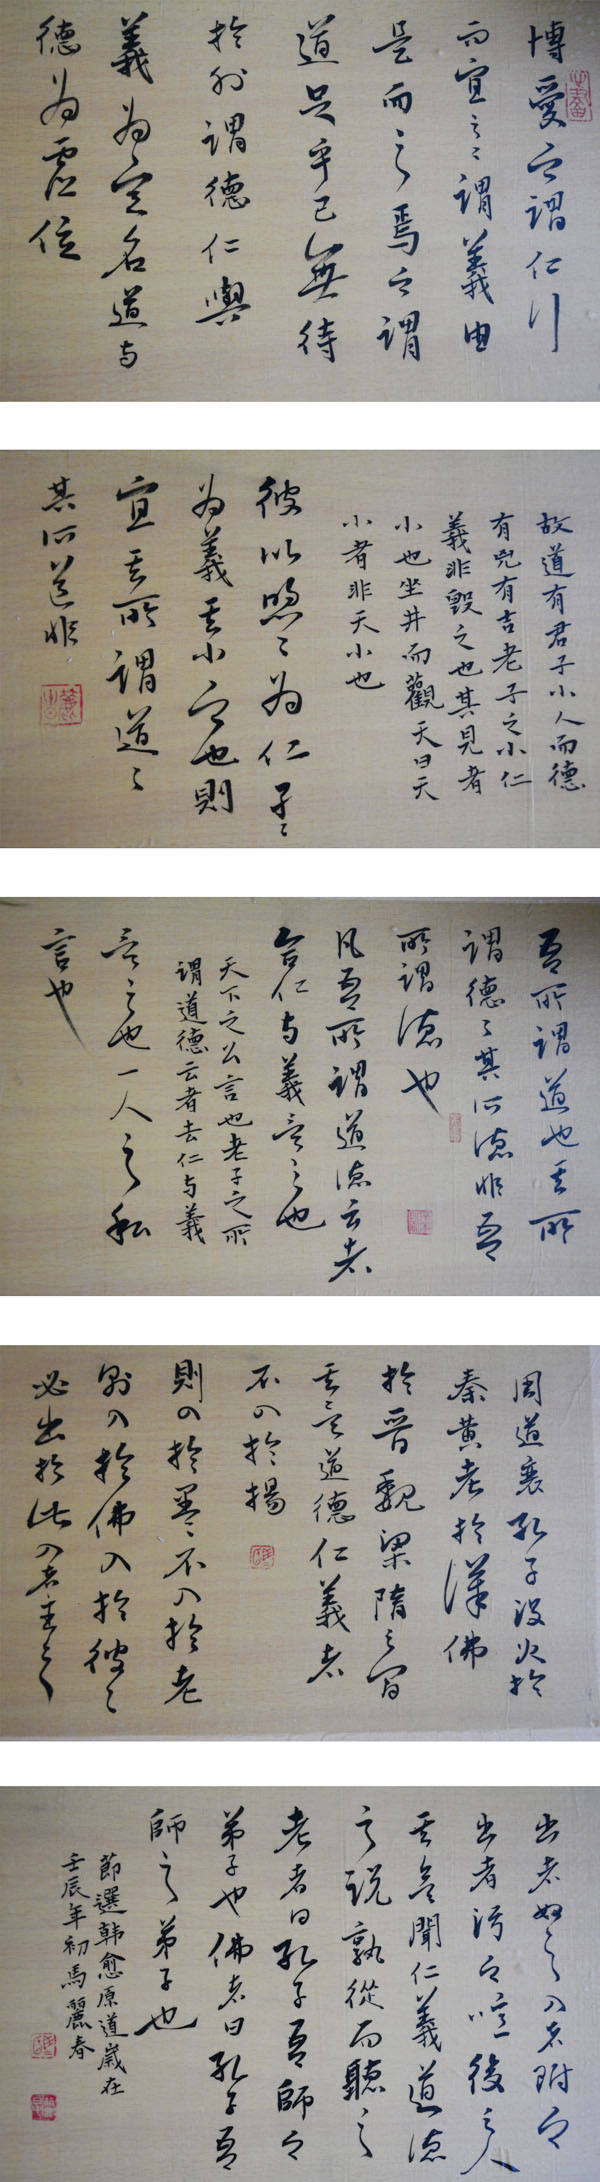 博愛之謂仁行
而宜之之謂義由
是而之焉之謂
道足乎己無待
於外謂德仁與
義為定名道与
德為虛位
故道有君子小人而德
有兇有吉老子之小仁
義非毀之也其見者
小也坐井而觀天曰天
小者非天小也
彼以煦煦為仁孑孑
為義其小之也則
宜其所謂道道
其所道非
吾所謂道也其所
謂德德其所德非吾
所謂德也
凡吾所謂道德云者
合仁与義言之也
天下之公言也老子之所
謂道德云者去仁与義
言之也一人之私
言也
周道衰孔子没火於
秦黄老於漢佛
於晋魏梁隋之間
其言道德仁義者
不入於揚
則入於墨墨不入於老
則入於佛入於彼彼
必出於此入者主之
出者奴之入者附之
出者污之噫後之人
其欲聞仁義道德
之説孰從而聽之
老者曰孔子吾師之
弟子也佛者曰孔子吾
師之弟子也
節選韓愈原道歲在
壬辰年初馬麗春